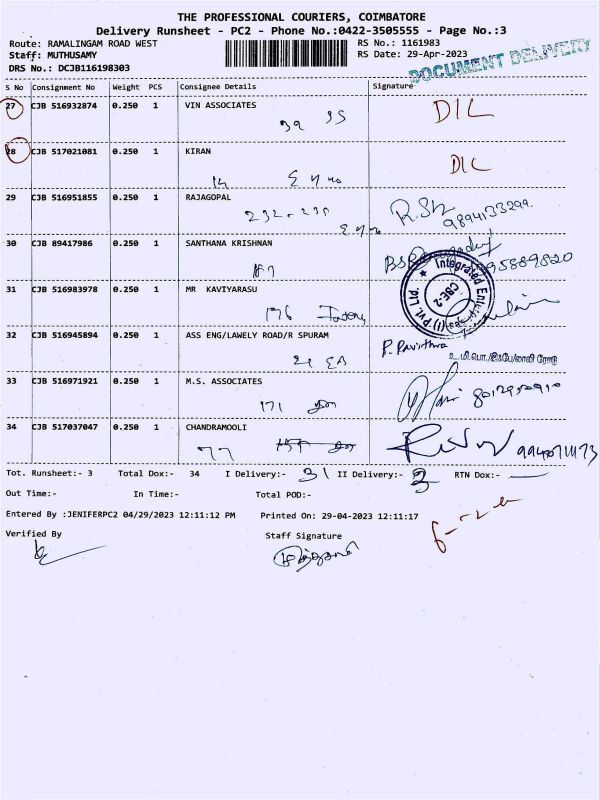 THE PROFESSIONAL COURIERS, COIMBATORE
Delivery Runsheet - PC2 - Phone No.:0422-3505555 - Page No.:3
Route: RAMALINGAM ROAD WEST RS No.: 1161983
Staff: MUTHUSAMY RS Date: 29-Apr-2023
DOCUMENT DELIVERY
DRS No.: DCJB116198303
S No Consignment No Weight PCS Consignee Details Signature
27 CJB 516932874 0.250 1 VIN ASSOCIATES
39 35 DIL
28 CJB 517021081 0.250 1 KIRAN
14 DIL
29 CJB 516951855 0.250 1 RAJAGOPAL
9894133299
30 CJB 89417986 0.250 1 SANTHANA KRISHNAN
Integrated Enterprises (I) Pvt. Ltd.
CBE-2
31 CJB 516983978 0.250 1 MR KAVIYARASU
176
32 CJB 516945894 0.250 1 ASS ENG/LAWELY ROAD/R SPURAM
P. Pavithra
33 CJB 516971921 0.250 1 M.S. ASSOCIATES
171
34 CJB 517037047 0.250 1 CHANDRAMOOLI
77
Tot. Runsheet:- 3 Total Dox:- 34 I Delivery:- 31 II Delivery:- 3 RTN Dox:-
Out Time:- In Time:- Total POD:-
Entered By :JENIFERPC2 04/29/2023 12:11:12 PM Printed On: 29-04-2023 12:11:17
Verified By Staff Signature